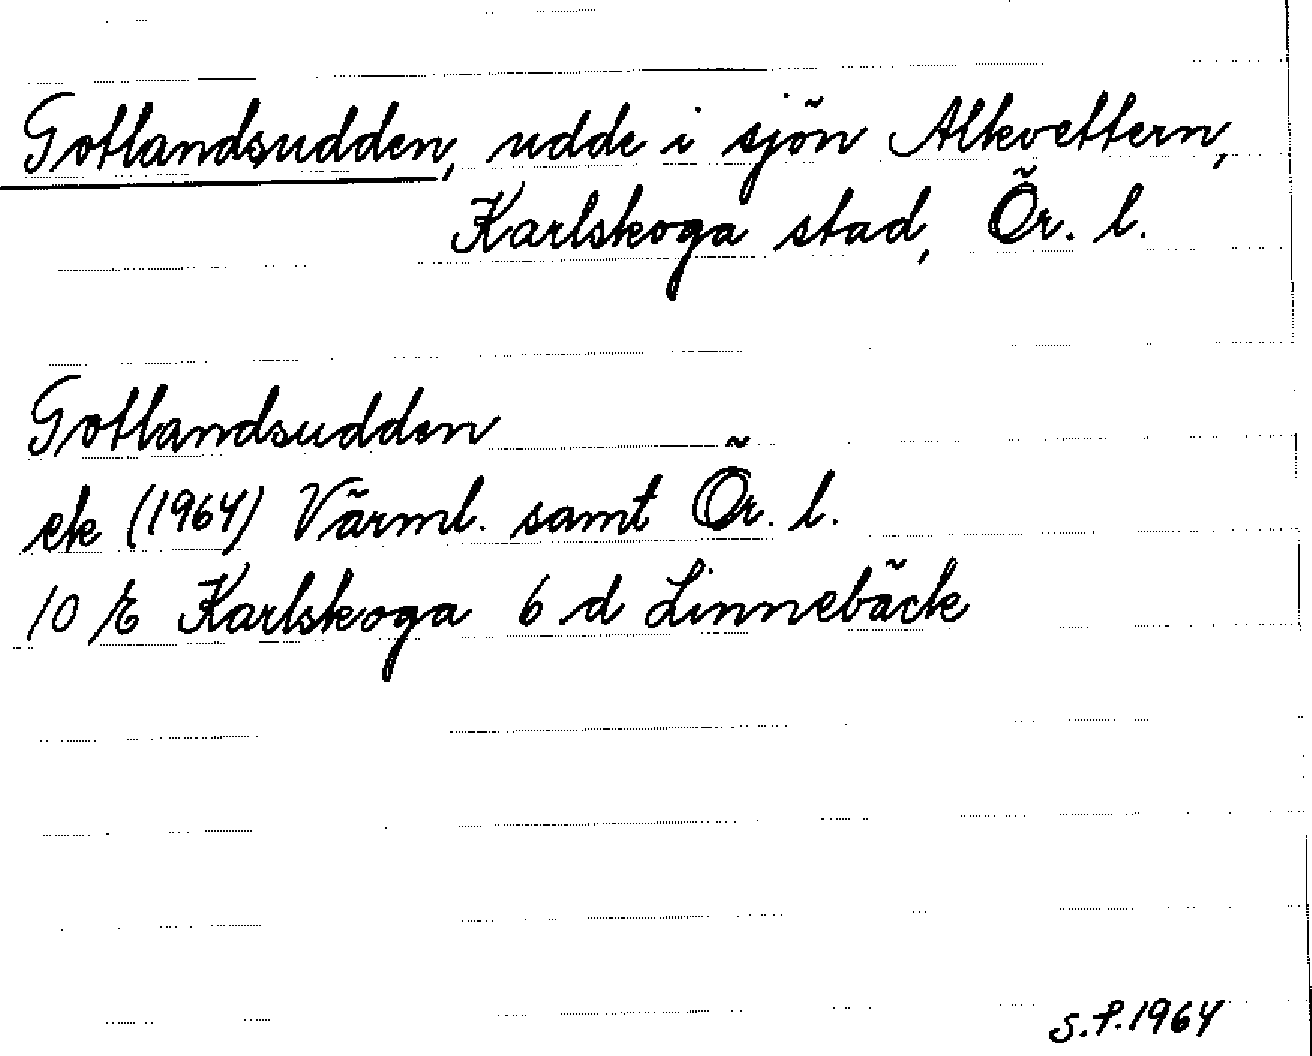 Gotlandsudden, udde i sjön Alkvettern,
Karlskoga stad, Ör. l.
Gotlandsudden
ek (1964) Värml. samt Ör. l.
10 E Karlskoga 6 d Linnebäck
S.P.1964